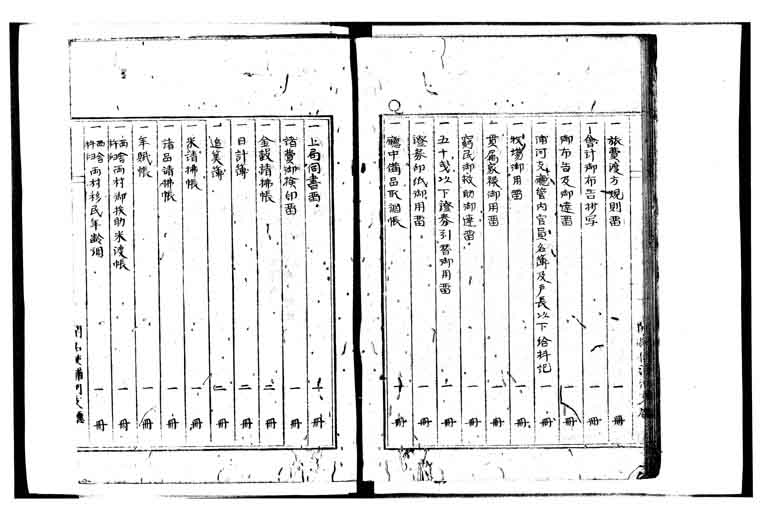 一 旅費渡方規則留 一 冊
一 会計御布告抄写 一 冊
一 御布告及御達留 一 冊
一 浦河支廰管内官員名簿及戸長以下給料記 一 冊
一 牧場御用留 一 冊
一 貫属家禄御用留 一 冊
一 窮民御救助御達留 一 冊
一 五十戔以下證券引替御用留 一 冊
一 證券印紙御用留 一 冊
一 廰中備品取調帳 一 冊
一 上局伺書留 一 冊
一 諸費御検印留 一 冊
一 金穀請拂帳 二 冊
一 日計簿 二 冊
一 追算簿 二 冊
一 米請拂帳 一 冊
一 諸品請拂帳 一 冊
一 年賦帳 一 冊
一 西舎杵臼両村御扶助米渡帳 一 冊
一 西舎杵臼両村移民年齢調 一 冊